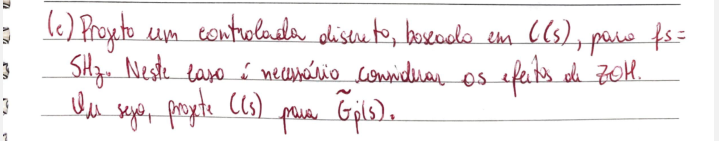 (c) Projeto um controlador discreto, baseado em C(s), para fs=
5Hz. Neste caso é necessário considerar os efeitos do ZOH.
Ou seja, projete C(s) para G̃p(s).